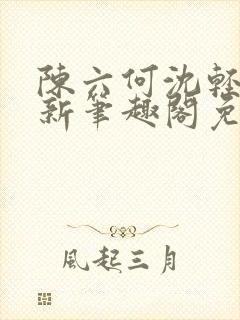 陳六何沈輕
新筆趣閣免
風起三月